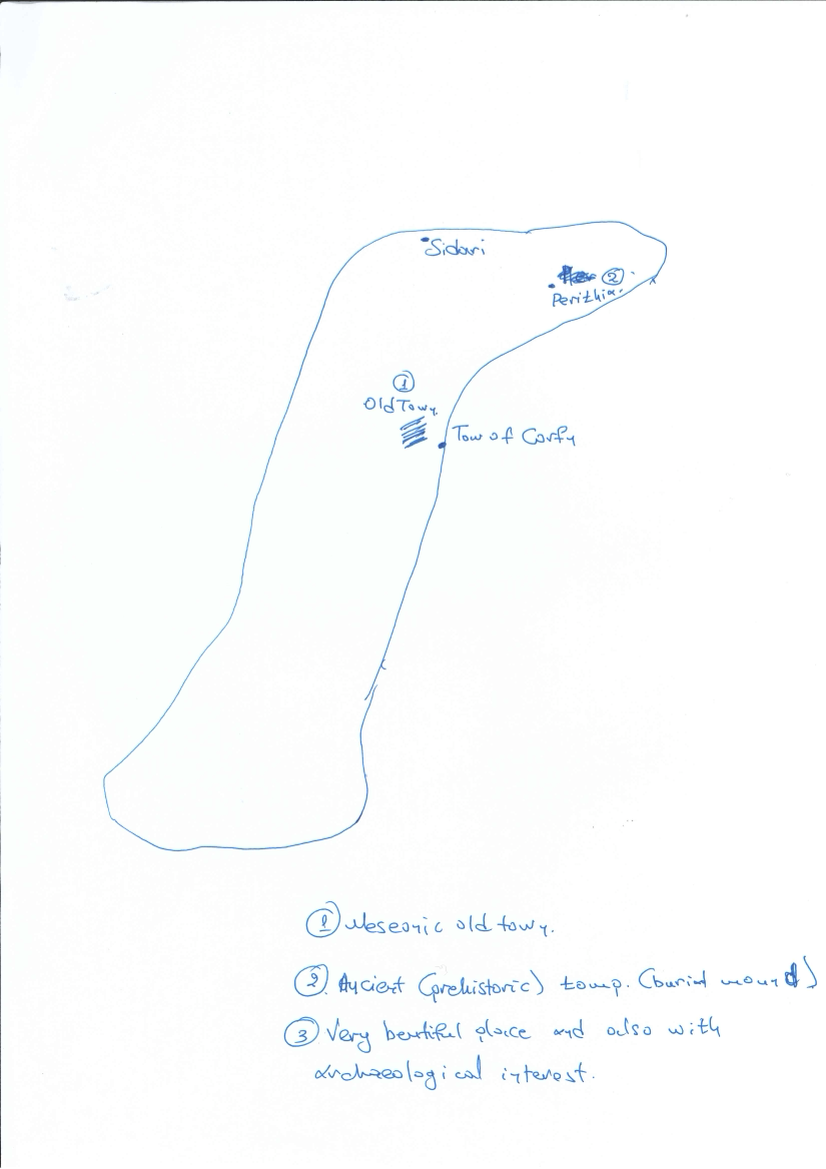 Sidari
②
Perithia.
①
Old Town
Tow of Corfu
① Meseonic old town.
② Ancient (prehistoric) tomp. (burial mound)
③ Very beutiful place and also with
archaeological interest.